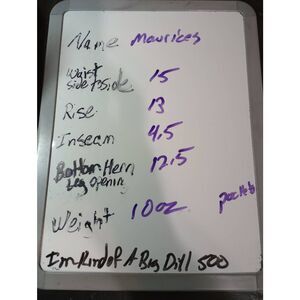 Name Maurices
Waist 15
side to side
Rise 13
Inseam 4.5
Bottom Hem 12.5
Leg opening
Weight 10oz pockets
I'm Kind of A Big Dil / 500